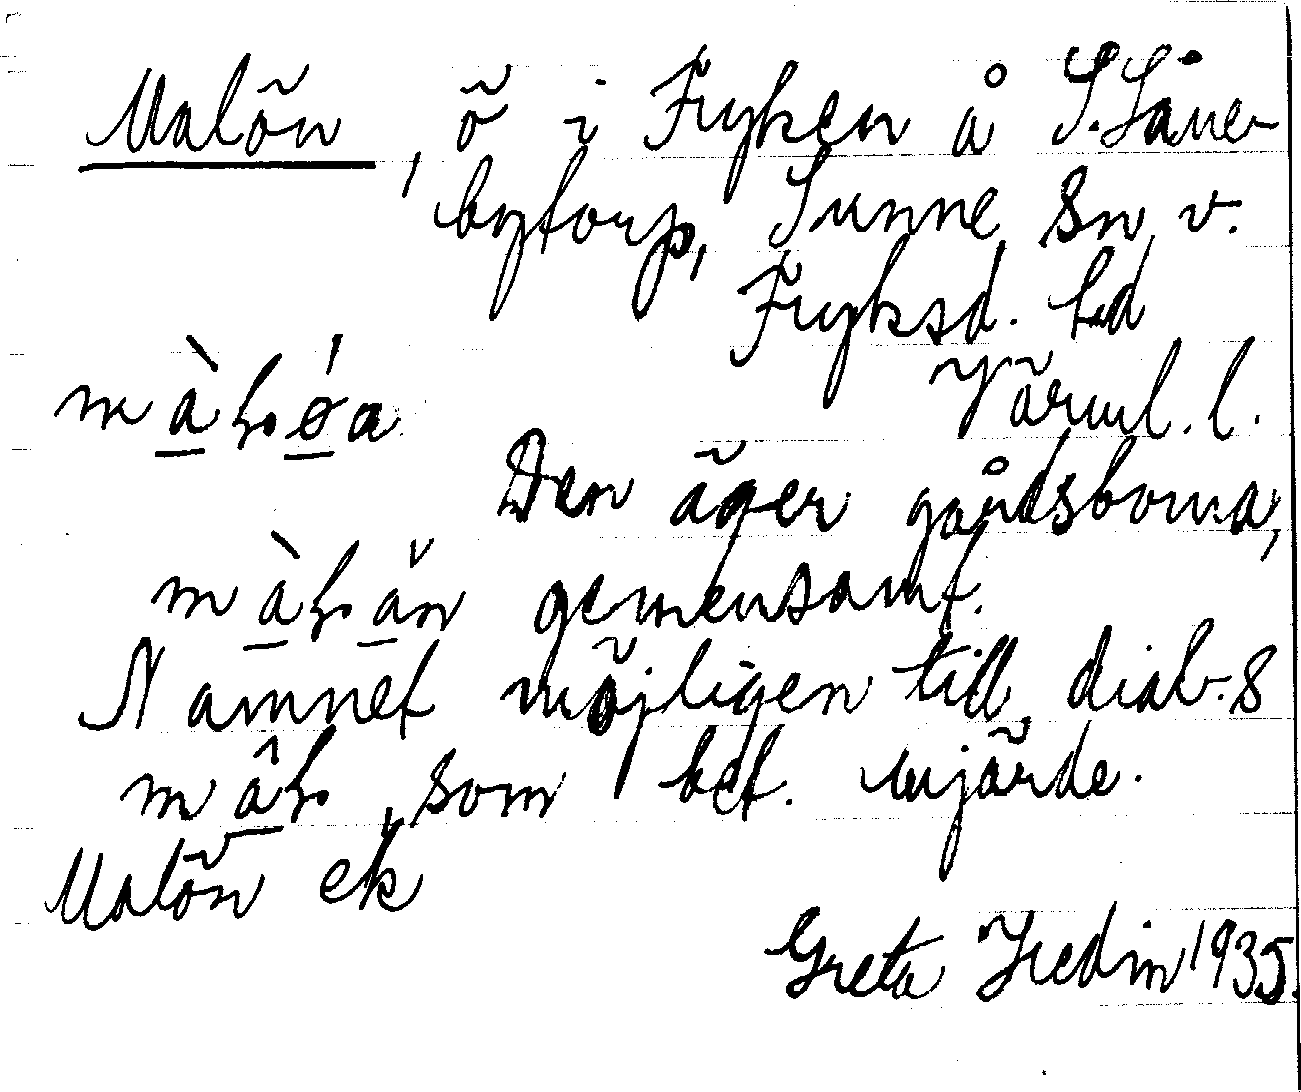 Malön, ö i Fryken å S. Såne-
bytorp, Sunne sn v.
Fryksd. hd
Värml. l.
Den äger gårdsborna,
gemensamt.
Namnet möjligen till dial-s
som bet. mjärde.
Malön ek
Greta Hedin 1935.